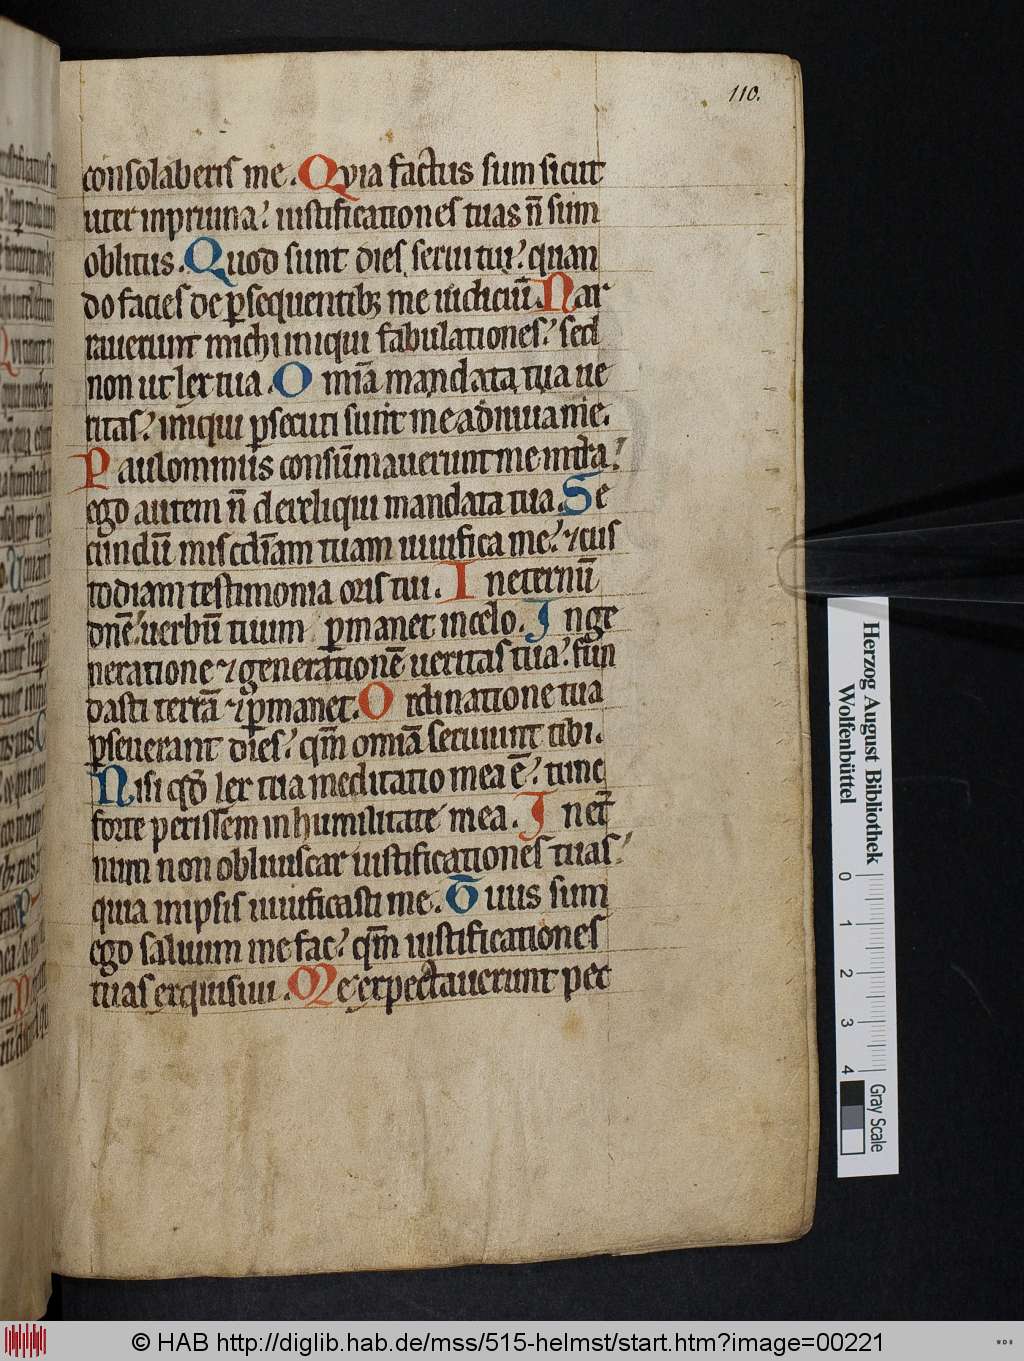 110.
consolaberis me. Quia factus sum sicut
uter inpruina? iustificationes tuas n̄ sum
oblitus. Quod sunt dies serui tui? quan
do facies de ꝑsequentibꝫ me iudiciū. Nar
rauerunt michi iniqui fabulationes? sed
non ut lex tua. Om̄ia mandata tua ue
ritas? iniqui ꝑsecuti sunt me adiuua me.
Paulominus consūmauerunt me in t̄ra?
ego autem n̄ dereliqui mandata tua. Se
cundū mis̄cdiam tuam uiuifica me? ⁊ cus
todiam testimonia oris tui. In eternū
dn̄e? uerbū tuum ꝑmanet in celo. In ge
neratione ⁊ generationē ueritas tua? fun
dasti terrā ⁊ ꝑmanet. Ordinatione tua
ꝑseuerant dies? qm̄ omīa seruiunt tibi.
Nisi qd̄ lex tua meditatio mea ē? tunc
forte perissem in humilitate mea. In et̄
num non obliuiscar iustificationes tuas?
quia in ipsis uiuificasti me. Tuus sum
ego saluum me fac? qm̄ iustificationes
tuas exquisiui. Me expectauerunt pec
Herzog August Bibliothek
Wolfenbüttel
0 1 2 3 4
Gray Scale
© HAB http://diglib.hab.de/mss/515-helmst/start.htm?image=00221